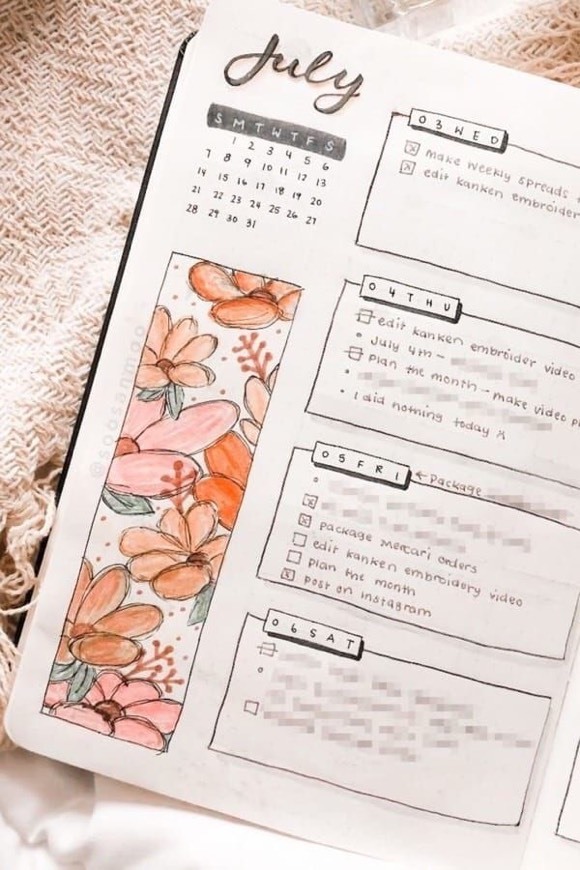 July
S M T W T F S
1 2 3 4 5 6
7 8 9 10 11 12 13
14 15 16 17 18 19 20
21 22 23 24 25 26 27
28 29 30 31
03 WED
make weekly spreads
edit kanken embroider
04 THU
edit kanken embroider video
July 4th -
plan the month - make video
I did nothing today
05 FRI
← Package
package mercari orders
edit kanken embroidery video
plan the month
post on instagram
06 SAT